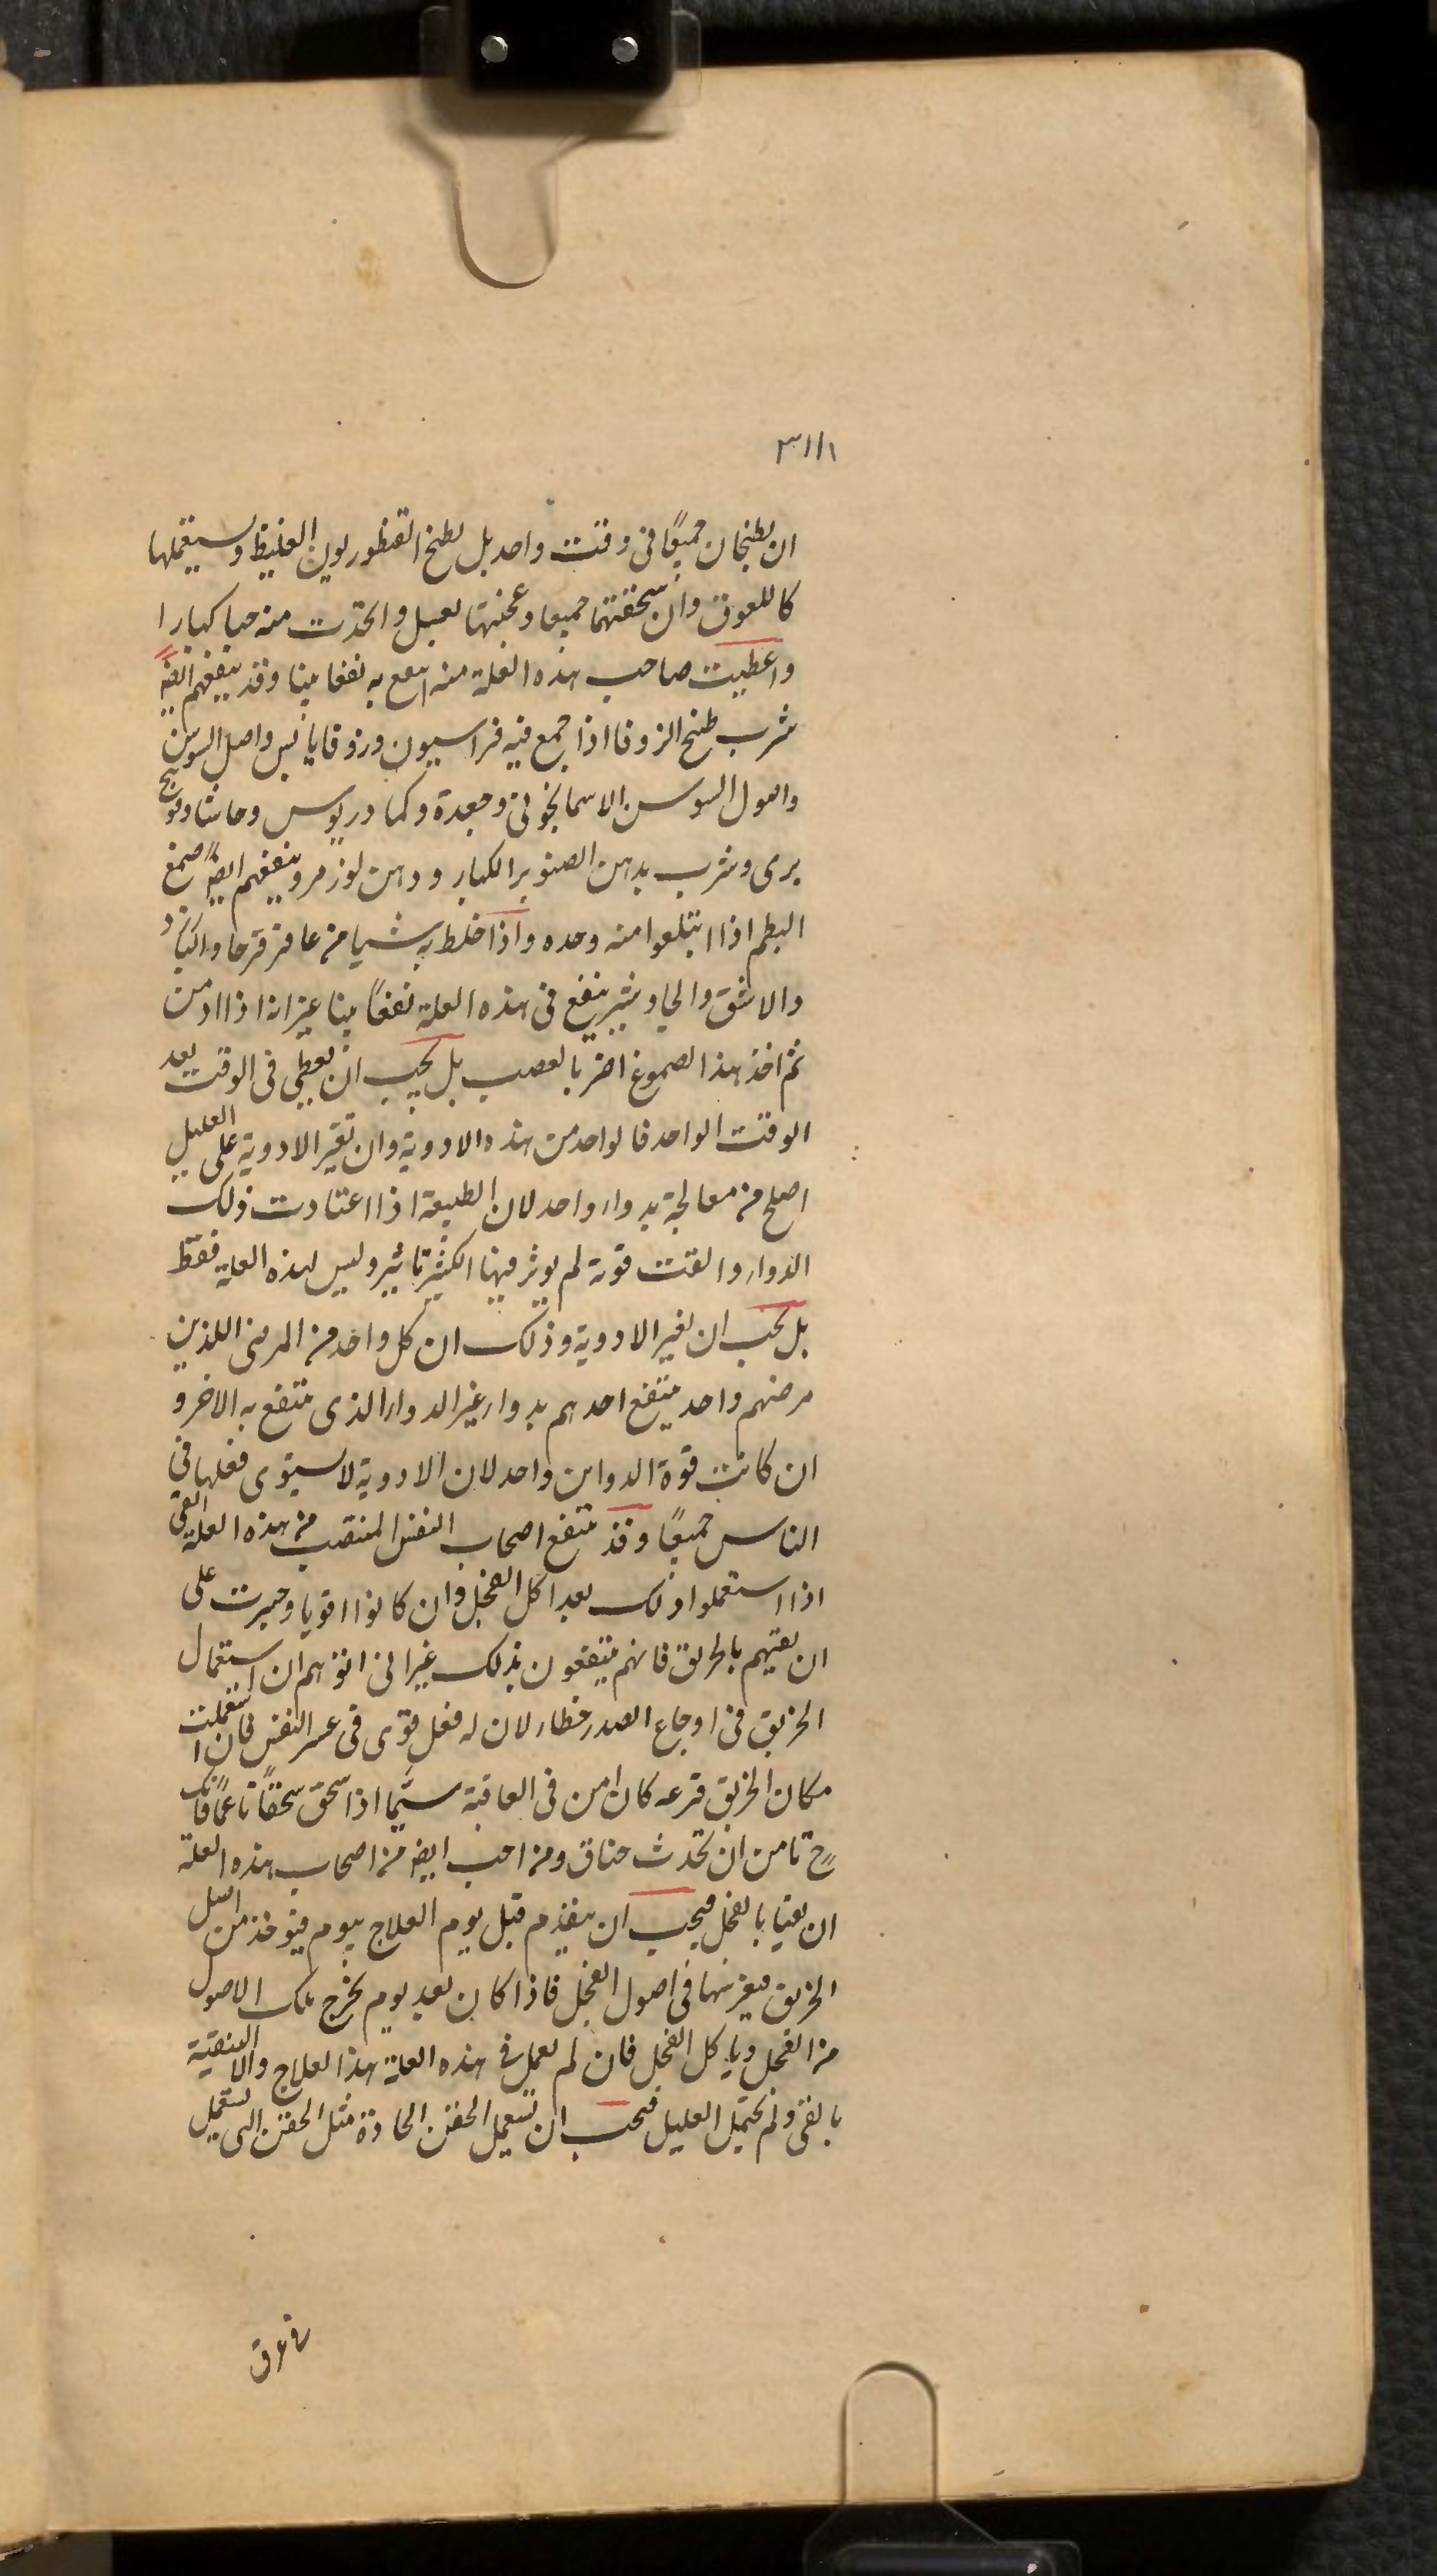 ٣١١١
ان يطبخان جميعًا فى وقت واحد بل يطبخ القنطوريون الغليظ ويستعملها
كاللعوق وان سحقتهما جميعا وعجنتها بعسل واتخذت منه حبا كبارا
واعطيت صاحب هذه العلة منه انتفع به نفعا بينا وقد ينفعهم ايضًا
شرب طبخ الزوفا اذا جمع فيه فراسيون وزوفا يابس واصل السوسن
واصول السوسن الاسمانجونى وجعدة وكمادريوس وحاشا وفوتنج
برى وشرب بدهن الصنوبر الكبار ودهن لوز مر وينفعهم ايضًا صمغ
البطم اذا ابتلعوا منه وحده واذا خلط به شيا من عاقرقرحا والبازرد
والاشق والجاوشير ينفع فى هذه العلة نفعًا بينا غير انه اذا ادمن
ثم اخذ هذا الصموغ اضر بالعصب بل يجب ان يعطى فى الوقت بعد
الوقت الواحد فالواحد من هذه الادوية وان تغير الادوية على العليل
اصلح من معالجة بدواء واحد لان الطبيعة اذا اعتادت ذلك
الدواء والفت قوته لم يوثر فيها الكثير تاثير وليس لهذه العلة فقط
بل يجب ان يغير الادوية وذلك ان كل واحد من المرضى اللذين
مرضهم واحد ينتفع احدهم بدواء غير الدواء الذى ينتفع به الاخر و
ان كانت قوة الدواين واحد لان الادوية لا يستوى فعلها فى
الناس جميعًا وقد ينتفع اصحاب النفس المنتصب من هذه العلة القى
اذا استعملوا ذلك بعد اكل الفجل وان كانوا اقويا وجسرت على
ان يقيهم بالخربق فانهم ينتفعون بذلك غير انى اتوهم ان استعمال
الخربق فى اوجاع الصدر خطار لان له فعل قوى فى عسر النفس فان استعملت
مكان الخربق قرعه كان امن فى العاقبة سيما اذا سحق سحقًا ناعمًا فانك
ح تامن ان تحدث خناق ومن احب ايض من اصحاب هذه العلة
ان يقيا بالفجل فيجب ان يتقدم قبل يوم العلاج بيوم فيوخذ من اصل
الخربق فيغرسها فى اصول الفجل فاذا كان بعد يوم يخرج تلك الاصول
من الفجل وياكل الفجل فان لم يعمل فى هذه العلة هذا العلاج والا التنقية
بالقى ولم يحتمل العليل فيجب ان تستعمل الحقن الحادة مثل الحقن التى تستعمل